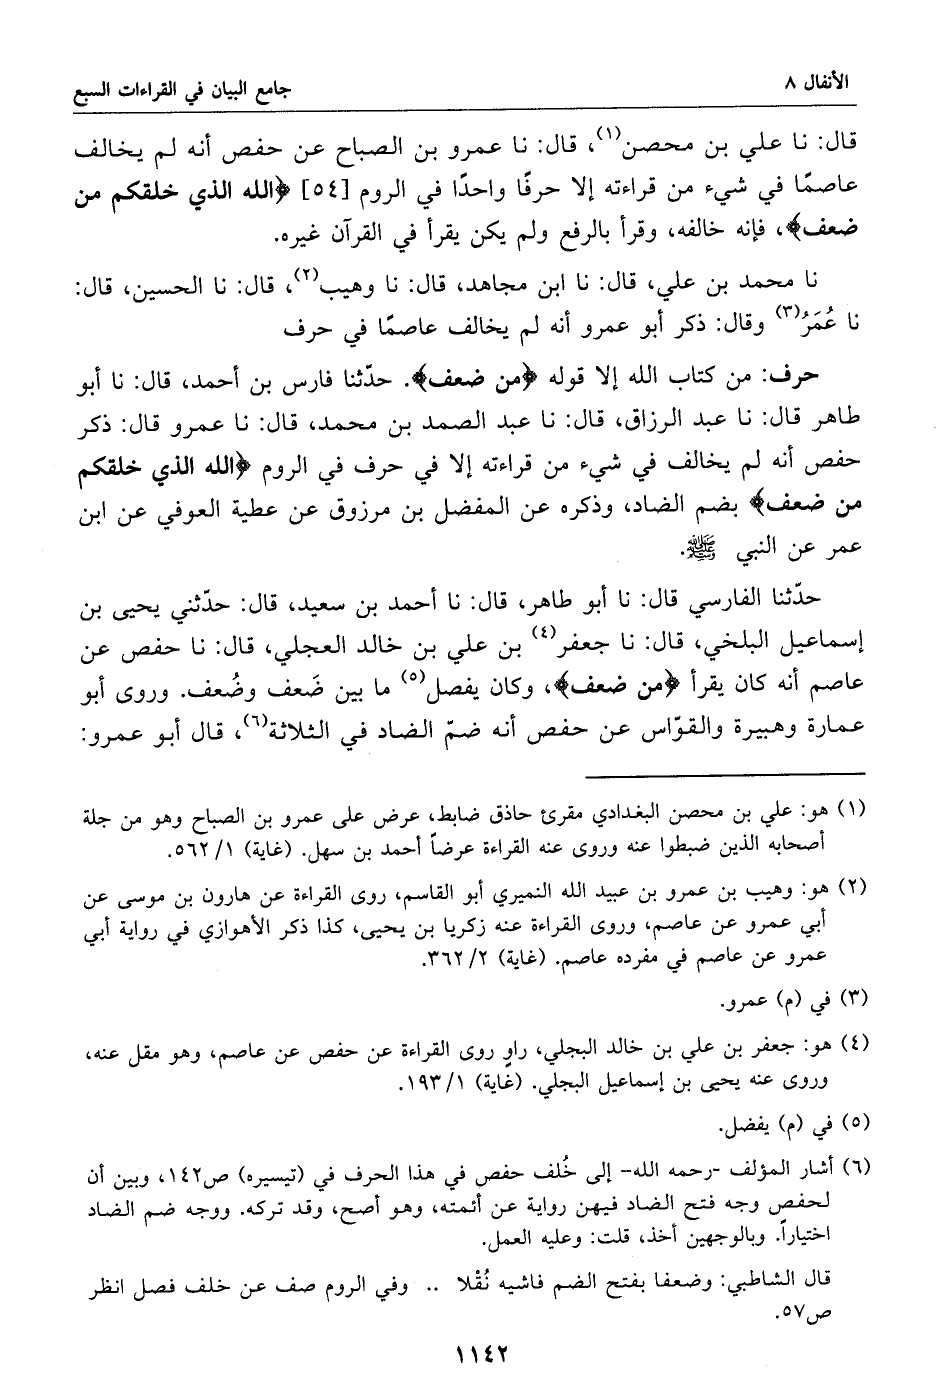 الأنفال ٨
جامع البيان في القراءات السبع
قال: نا علي بن محصن(١)، قال: نا عمرو بن الصباح عن حفص أنه لم يخالف
عاصمًا في شيء من قراءته إلا حرفًا واحدًا في الروم [٥٤] ﴿الله الذي خلقكم من
ضعف﴾، فإنه خالفه، وقرأ بالرفع ولم يكن يقرأ في القرآن غيره.
نا محمد بن علي، قال: نا ابن مجاهد، قال: نا وهيب(٢)، قال: نا الحسين، قال:
نا عُمَرُ(٣) وقال: ذكر أبو عمرو أنه لم يخالف عاصمًا في حرف
حرف: من كتاب الله إلا قوله ﴿من ضعف﴾. حدّثنا فارس بن أحمد، قال: نا أبو
طاهر قال: نا عبد الرزاق، قال: نا عبد الصمد بن محمد، قال: نا عمرو قال: ذكر
حفص أنه لم يخالف في شيء من قراءته إلا في حرف في الروم ﴿الله الذي خلقكم
من ضعف﴾ بضم الضاد، وذكره عن المفضل بن مرزوق عن عطية العوفي عن ابن
عمر عن النبي ﷺ.
حدّثنا الفارسي قال: نا أبو طاهر، قال: نا أحمد بن سعيد، قال: حدّثني يحيى بن
إسماعيل البلخي، قال: نا جعفر(٤) بن علي بن خالد العجلي، قال: نا حفص عن
عاصم أنه كان يقرأ ﴿من ضعف﴾، وكان يفصل(٥) ما بين ضَعف وضُعف. وروى أبو
عمارة وهبيرة والقوّاس عن حفص أنه ضمّ الضاد في الثلاثة(٦)، قال أبو عمرو:
(١) هو: علي بن محصن البغدادي مقرئ حاذق ضابط، عرض على عمرو بن الصباح وهو من جلة
أصحابه الذين ضبطوا عنه وروى عنه القراءة عرضاً أحمد بن سهل. (غاية) ١/ ٥٦٢.
(٢) هو: وهيب بن عمرو بن عبيد الله النميري أبو القاسم، روى القراءة عن هارون بن موسى عن
أبي عمرو عن عاصم، وروى القراءة عنه زكريا بن يحيى، كذا ذكر الأهوازي في رواية أبي
عمرو عن عاصم في مفرده عاصم. (غاية) ٢/ ٣٦٢.
(٣) في (م) عمرو.
(٤) هو: جعفر بن علي بن خالد البجلي، راوٍ روى القراءة عن حفص عن عاصم، وهو مقل عنه،
وروى عنه يحيى بن إسماعيل البجلي. (غاية) ١/ ١٩٣.
(٥) في (م) يفضل.
(٦) أشار المؤلف -رحمه الله- إلى خُلف حفص في هذا الحرف في (تيسيره) ص١٤٢، وبين أن
لحفص وجه فتح الضاد فيهن رواية عن أئمته، وهو أصح، وقد تركه. ووجه ضم الضاد
اختياراً. وبالوجهين أخذ، قلت: وعليه العمل.
قال الشاطبي: وضعفا بفتح الضم فاشيه نُقْلا .. وفي الروم صف عن خلف فصل انظر
ص٥٧.
١١٤٢